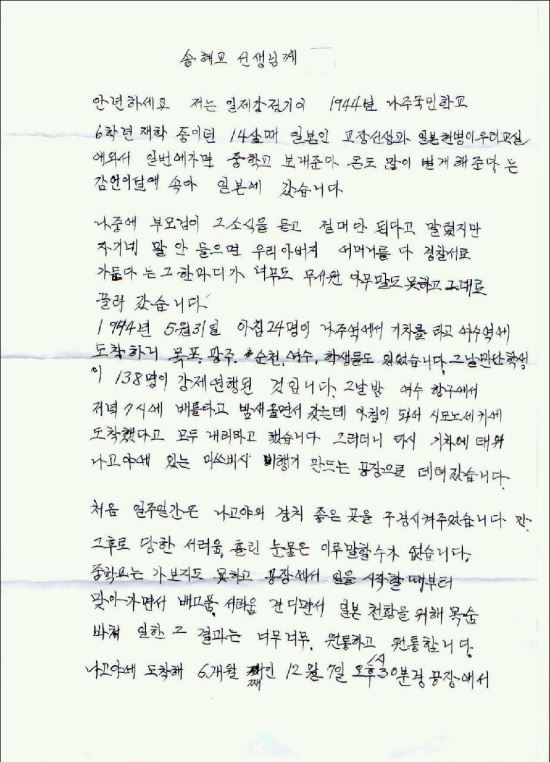 송혜교 선생님께
안녕하세요 저는 일제강점기인 1944년 나주국민학교
6학년 재학 중이던 14살때 일본인 교장선생과 일본헌병이 우리교실
에와서 일본에가면 중학교 보내준다 돈도 많이 벌게 해준다 는
감언이설에 속아 일본에 갔습니다
나중에 부모님이 그소식을 듣고 절대 안 된다고 말렸지만
자기네 말 안 들으면 우리아버지 어머니를 다 경찰서로
가둔다 는 그 한마디가 너무도 무서워 아무말도 못하고 그대로
끌려 갔습니다.
1944년 5월31일 아침 24명이 나주역에서 기차를 타고 여수역에
도착하니 목포, 광주, 순천, 여수, 학생들도 있었습니다. 그날만난 학생
이 138명이 강제연행된 것입니다. 그날 밤 여수 항구에서
저녁 7시에 배를타고 밤새 울면서 갔는데 아침이 돼서 시모노세키에
도착했다고 모두 내리라고 했습니다 그러더니 다시 기차에 태워
나고야에 있는 미쓰비시 비행기 만드는 공장으로 데려갔습니다.
처음 일주일간은 나고야의 경치 좋은 곳을 구경시켜주었습니다 만.
그후로 당한 서러움, 흘린 눈물은 이루말할수가 없습니다.
중학교는 가보지도 못하고 공장에서 일을 시작할 때부터
맞아 가면서 배고픔, 서러움 견디면서 일본 천황을 위해 목숨
바쳐 일한 그 결과는 너무너무, 원통하고 원통합니다.
나고야에 도착해 6개월 째인 12월 7일 오후1시30분경 공장에서